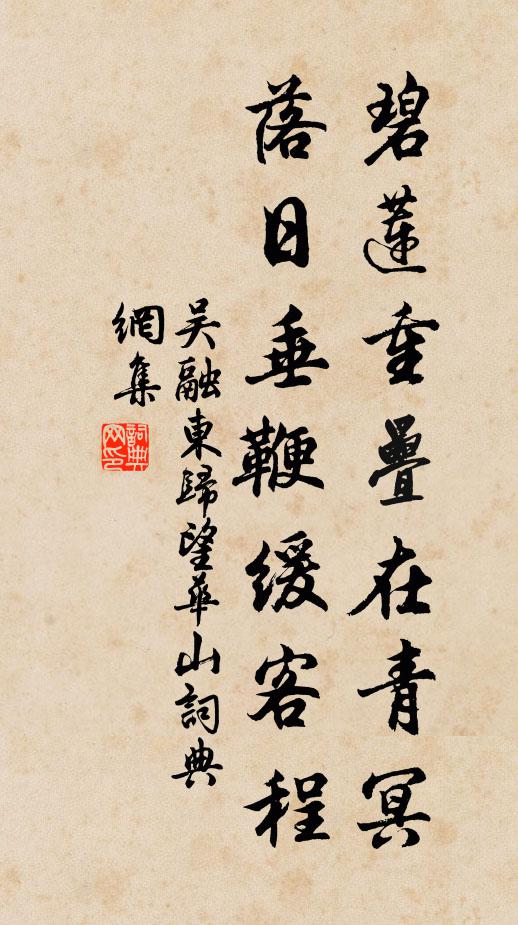 碧蓮重疊在青冥
落日垂鞭緩客程
吴融東歸望華山詞典
網集
詞典網印